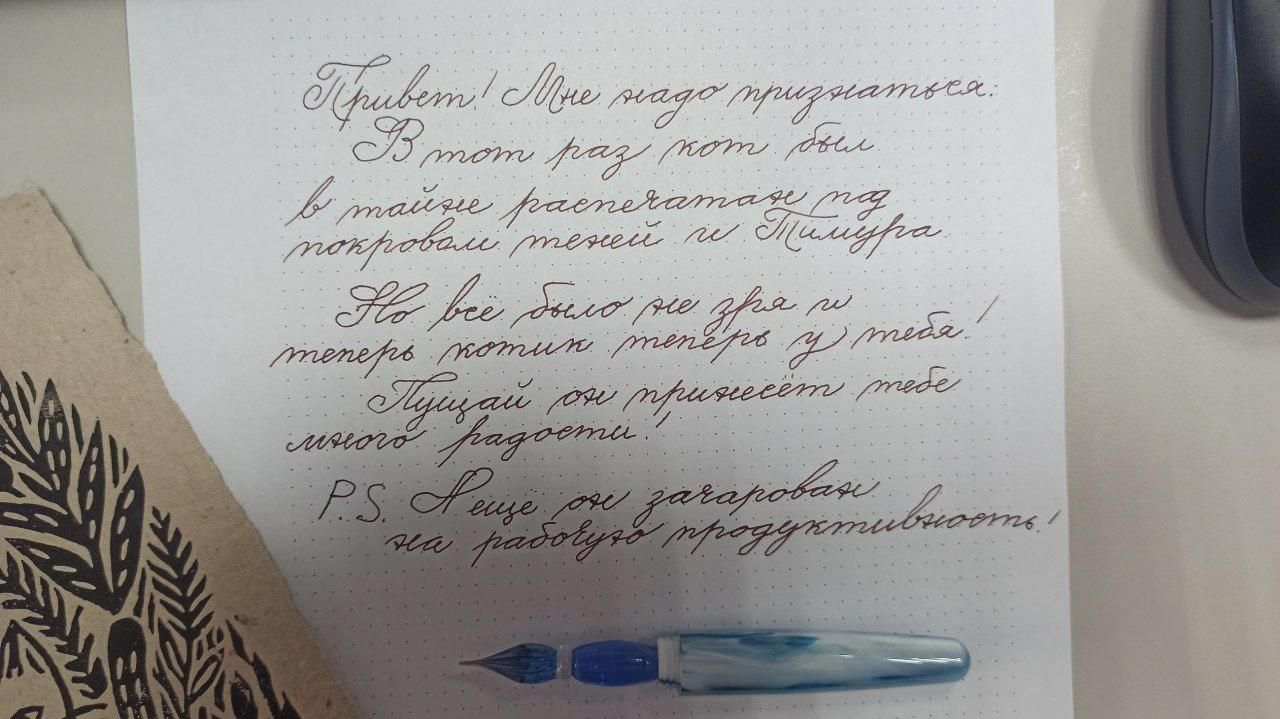 Привет! Мне надо признаться:
В тот раз кот был
в тайне распечатан под
покровом теней и Тимура
Но всё было не зря и
теперь котик теперь у тебя!
Пущай он принесёт тебе
много радости!
P.S. А ещё он зачарован
на рабочую продуктивность!